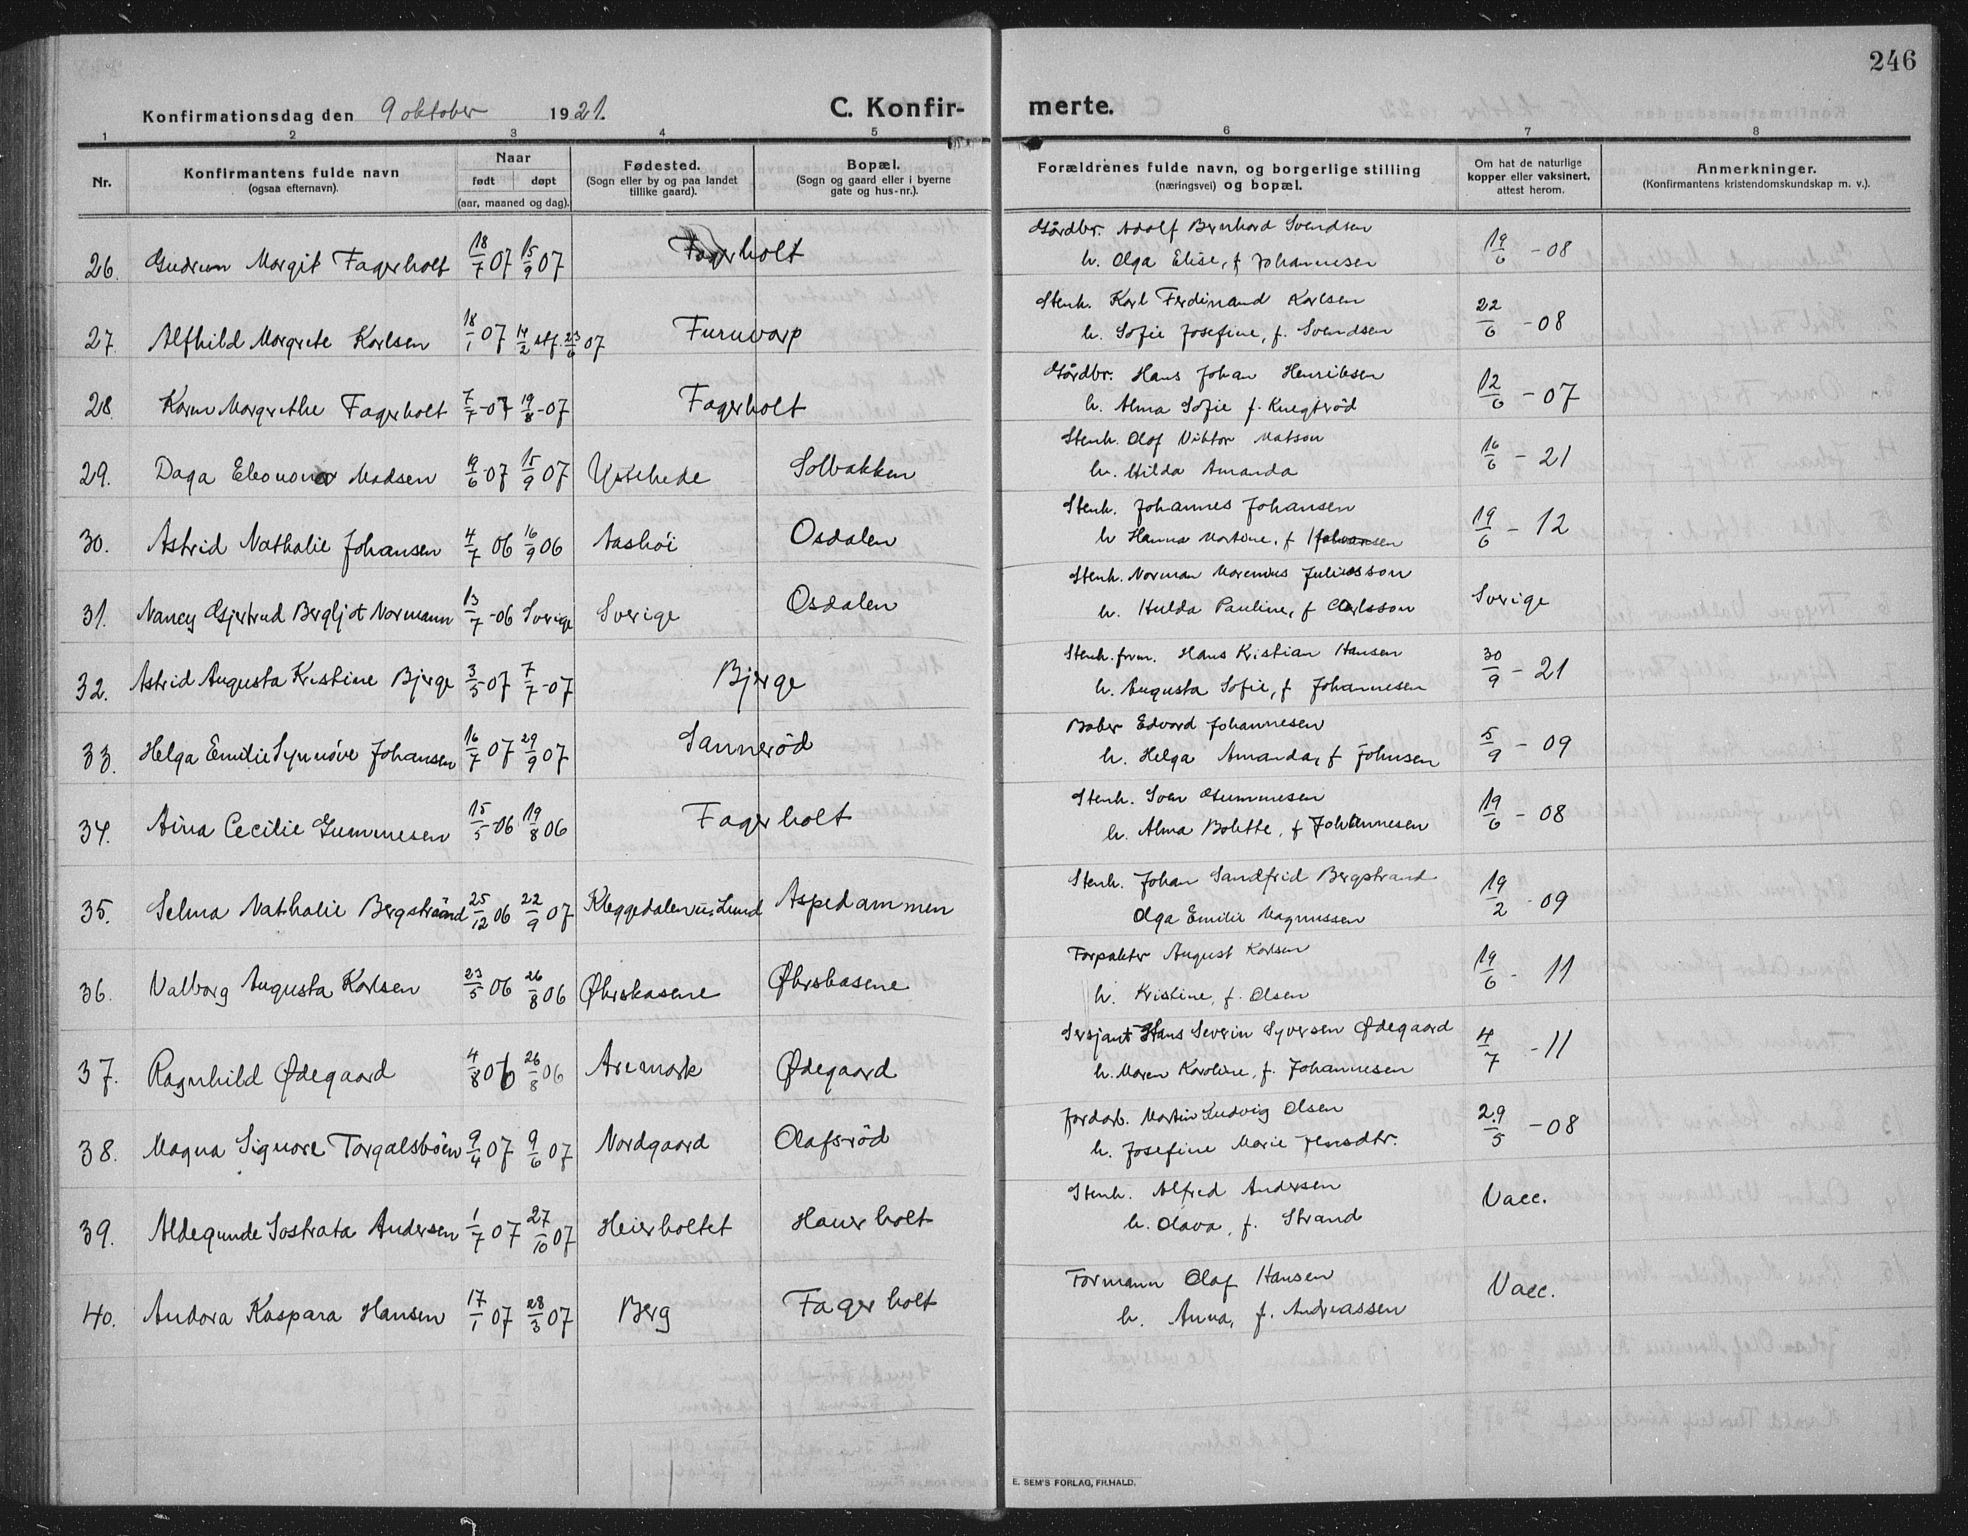 246
Konfirmationsdag den 9 oktober 1921. C. Konfirmerte.
1 2 3 4 5 6 7 8
Nr. Konfirmantens fulde navn (ogsaa efternavn). Naar født døpt (aar, maaned og dag). Fødested. (Sogn eller by og paa landet tillike gaard). Bopæl. (Sogn og gaard eller i byerne gate og hus-nr.). Forældrenes fulde navn, og borgerlige stilling (næringsvei) og bopæl. Om hat de naturlige kopper eller vaksinert, attest herom. Anmerkninger. (Konfirmantens kristendomskundskap m. v.).
26. Gudrun Margit Fagerholt 18/7 07 15/9 07 Fagerholt Gårdbr. Adolf Bernhard Svendsen 19/6 - 08
h. Olga Elise, f Johannesen
27. Alfhild Margrete Karlsen 18/1 07 14/2 stf. 23/6 07 Furuvarp Stenh. Karl Ferdinand Karlsen 22/6 - 08
h. Sofie Josefine, f. Svendsen
28. Karen Margrethe Fagerholt 7/7 - 07 19/8 - 07 Fagerholt Gårdbr. Hans Johan Henriksen 12/6 - 07
h. Alma Sofie f.
29. Daga Eleonora Madsen 19/6 07 15/9 07 Ystehede Solbakken Stenh. Olof Viktor Matson 16/6 - 21
h. Hilda Amanda
30. Astrid Nathalie Johansen 4/7 06 16/9 06 Aashöi Osdalen Stenh. Johannes Johansen 19/6 - 12
h Hanna Martine, f Johansen
31. Nancy Gjertrud Bergljot Normann 13/7 - 06 Sverige Sverige Osdalen Stenh. Norman Marenius Juliusson Sverige
h. Hulda Pauline, f Carlsson
32. Astrid Augusta Kristine Bjerge 3/5 - 07 7/7 - 07 Bjerge Stenh. frm. Hans Kristian Hansen 30/9 - 21
h. Augusta Sofie, f Johannesen
33. Helga Emilie Synnöve Johansen 16/7 07 29/9 07 Sannerød Baker Edvard Johannesen 5/9 - 09
h. Helga Amanda, f Johnsen
34. Aina Cecilie Gummesen 15/5 - 06 19/8 06 Fagerholt Stenh. Sven Gummesen 19/6 - 08
h. Alma Bolette, f Johannesen
35. Selma Nathalie Bergstrand 25/12 06 22/9 07 Kleggedalen u. Lund Aspedammen Stenh. Johan Sandfrid Bergstrand 19/2 - 09
Olga Emilie Magnussen
36. Valborg Augusta Karlsen 23/5 06 26/8 06 Øbrskasene Øbrskasene Forpakter August Karlsen 19/6 - 11
h. Kristine, f. Olsen
37. Ragnhild Ødegaard 4/8 06 26/8 06 Aremark Ødegaard Sersjant Hans Severin Syversen Ødegaard 4/7 - 11
h. Maren Karoline, f. Johannesen
38. Magna Signore Torgalsböen 9/4 07 9/6 07 Nordgaard Olafsröd Jordarb. Martin Ludvig Olsen 29/5 - 08
h. Josefine Marie Jensdtr.
39. Aldegunde Sostrata Andersen 1/7 07 27/10 07 Heierholtet Hauerholt Stenh. Alfred Andersen Vacc.
h. Olava, f. Strand
40. Andora Kaspara Hansen 17/1 07 28/3 07 Berg Fagerholt Formann Olaf Hansen Vacc.
h. Anna, f. Andreassen
E. SEM'S FORLAG, FR.HALD.